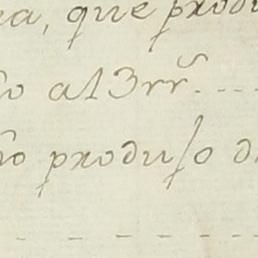 a, que produ
o al 3rrs. . . .
o produſo d